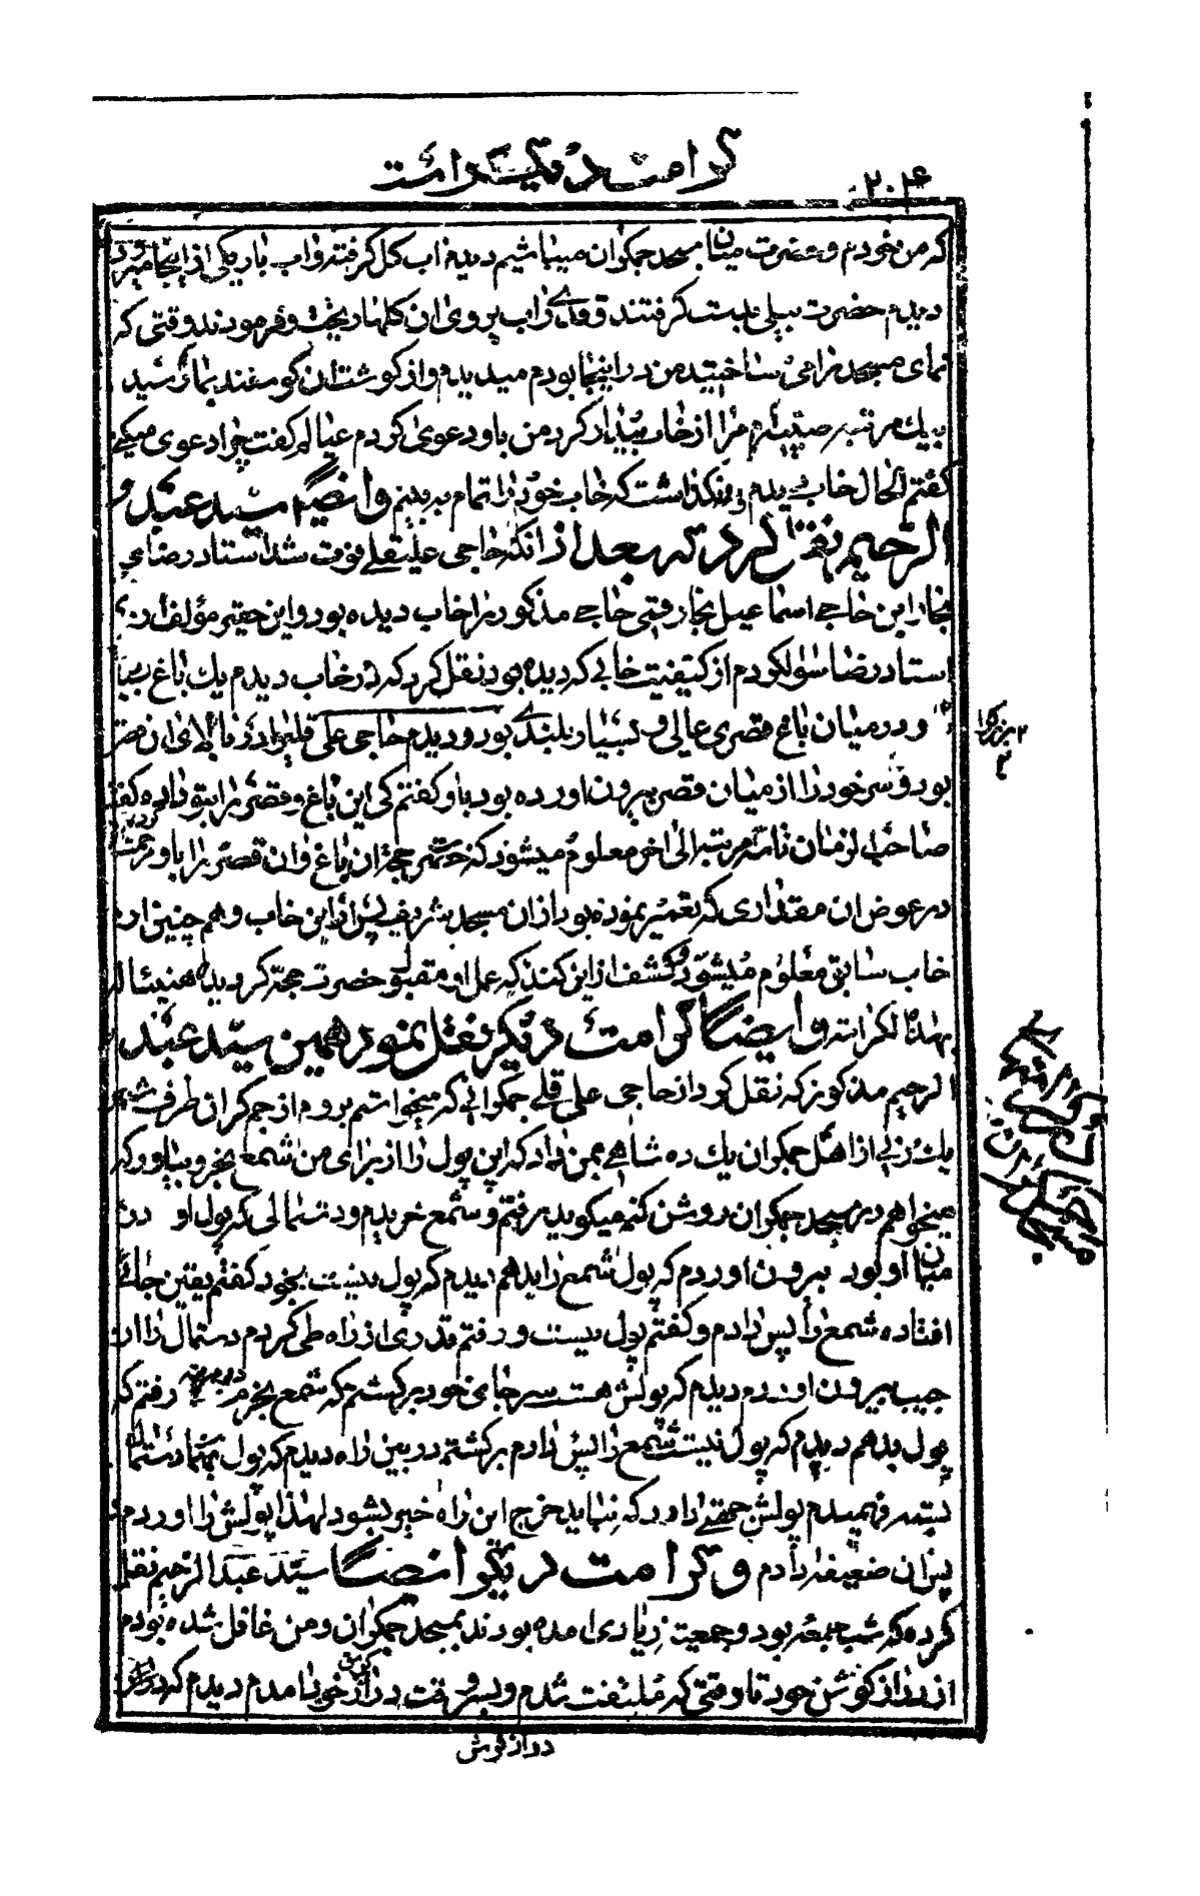 کرامت دیگر است
۲۰۴
که من خودم و حضرت میان مسجد جمکران میباشیم دیدم اب کل گرفته و اب باریکی از اینجا میرود
دیدم حضرت بیلی بدست گرفتند و قدری اب بروی ان کلها ریخت و فرمودند وقتی که
نمای مسجد را می ساختید من در اینجا بودم میدیدم و از گوشت ان گوسفند بما رسید
بیک مرتبه صبیه ام مرا از خاب بیدار کرد من باو دعوی کردم عیالم گفت چرا دعوی میکنی
گفتم الحال خاب میدیدم نگذاشت که خاب خود را تمام به بینم و ایضا سید عبد
الرحیم نقل کرد که بعد از انکه حاجی علیقلی فوت شد استاد رضای
نجار ابن حاجی اسماعیل نجار رفیق حاجی مذکور را خاب دیده بود و این حقیر مؤلف از
استاد رضا سؤال کردم از کیفیت خابی که دیده بود نقل کرد که در خاب دیدم یک باغ بسیار
و در میان باغ قصری عالی و بسیار بلندی بود و دیدم حاجی علی قلیرا در بالای ان قصر
بود و سر خود را از میان قصر بیرون اورده بود باو گفتم کی این باغ و قصر را بتو داده گفت
صاحب الزمان تا اخر معلوم میشود که حضرت حجة ان باغ و ان قصر را باو مرحمت
در عوض ان مقداری که تعمیر نموده بود از ان مسجد شریف پس از این خاب و هم چنین از
خاب سابق معلوم میشود و کشف از این کند که عمل او مقبول حضرت حجة گردیده هنیئا له
بهذا الکرامة و ایضا کرامت دیگر نقل نمود همین سید عبد
الرحیم مذکور که نقل کرد از حاجی علی قلی جمکرانی که میخواستم بروم از جمکران طرف شهر
یک زنی از اهل جمکران یک ده شاهی بمن داد که این پول را از برای من شمع بخر و بیاور که
میخواهم در مسجد جمکران روشن کنم میگوید رفتم و شمع خریدم و دستمالی که پول او در
میان او بود بیرون اوردم که پول شمع را بدهم دیدم که پول نیست بخود گفتم یقین جائی
افتاده شمع را پس دادم و گفتم پول نیست و رفتم قدری از راه طی کردم دستمال را از
جیب بیرون اوردم دیدم که پولش هست سر جای خود برگشتم که شمع بخرم دو مرتبه رفتم که
پول بدهم دیدم که پول نیست شمع را پس دادم برگشتم در بین راه دیدم که پول میان دستمال
بسته فهمیدم پولش جهتی دارد که نباید خرج این راه خیر بشود لهذا پولش را اوردم
بان ضعیفه دادم و کرامت دیگر ایضا سید عبد الرحیم نقل
کرده که شب جمعه بود و جمعیت زیادی امده بودند بمسجد جمکران و من غافل شده بودم
از دراز گوش خود تا وقتی که ملتفت شدم و بسر وقت دراز گوش خود امدم دیدم که
دراز گوش